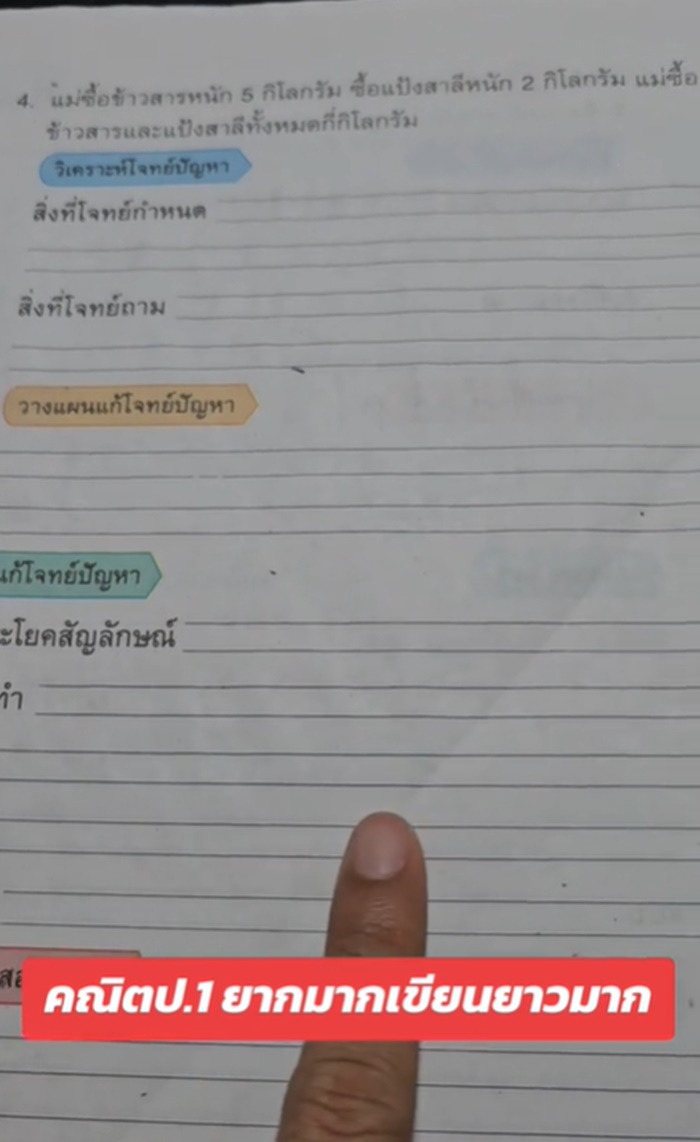 4. แม่ซื้อข้าวสารหนัก 5 กิโลกรัม ซื้อแป้งสาลีหนัก 2 กิโลกรัม แม่ซื้อ
ข้าวสารและแป้งสาลีทั้งหมดกี่กิโลกรัม
วิเคราะห์โจทย์ปัญหา
สิ่งที่โจทย์กำหนด
สิ่งที่โจทย์ถาม
วางแผนแก้โจทย์ปัญหา
แก้โจทย์ปัญหา
ะโยคสัญลักษณ์
ทำ
คณิตป.1 ยากมากเขียนยาวมาก